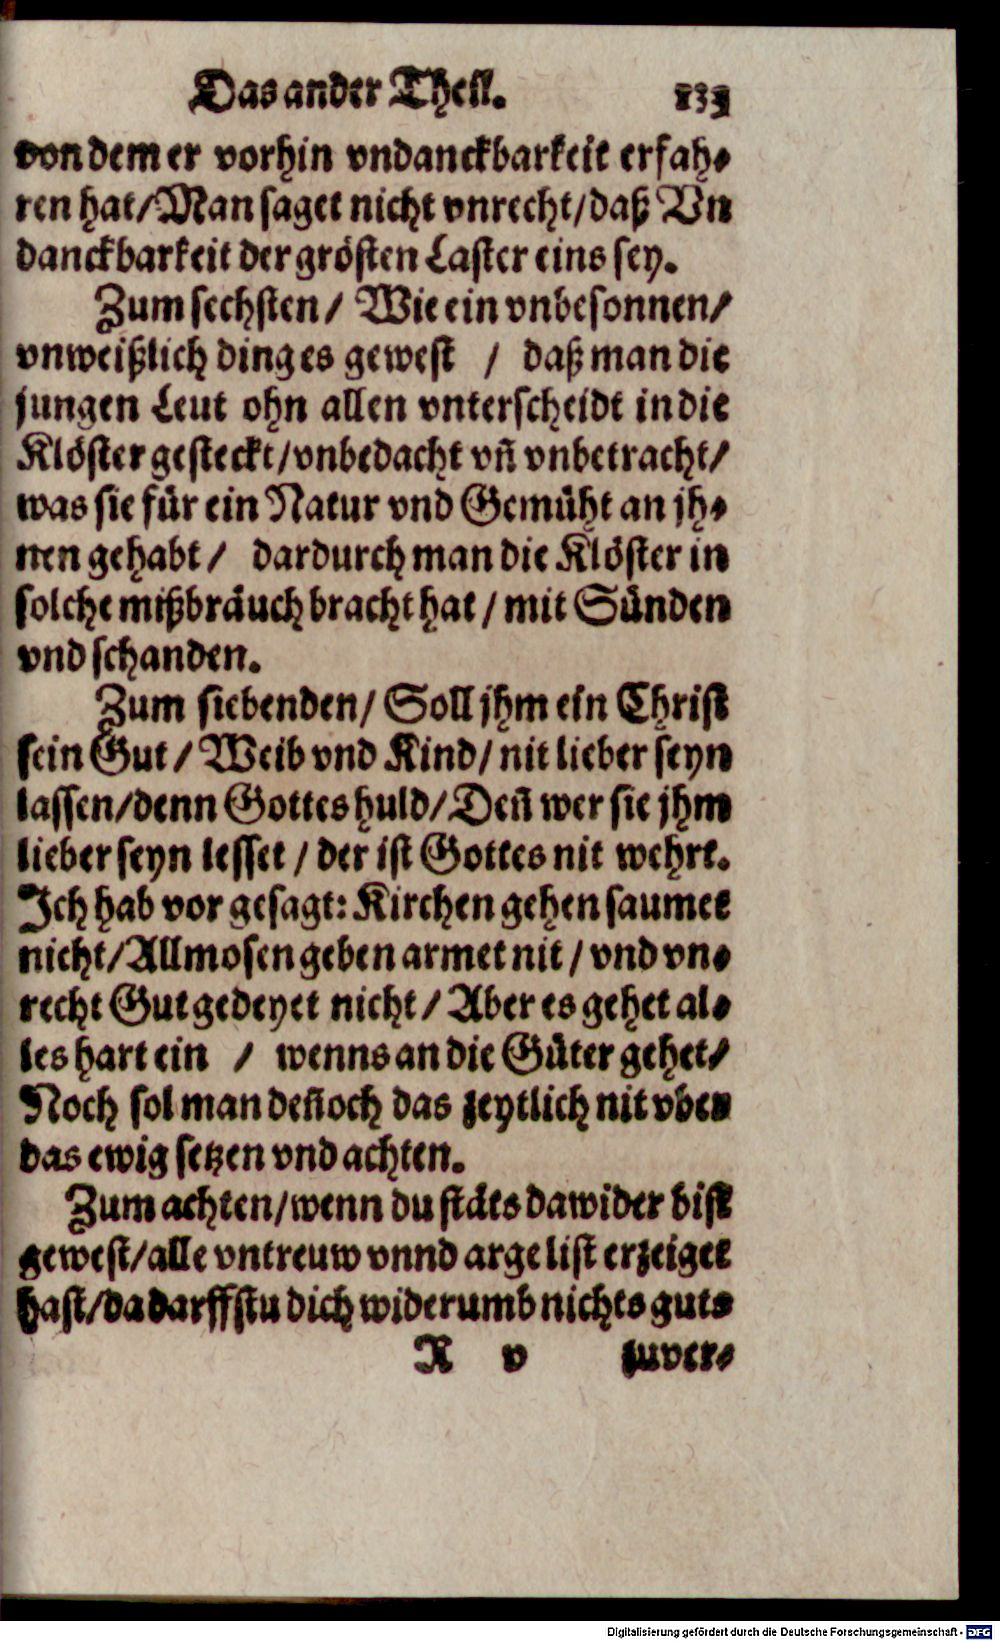 Das ander Theil. 133
von dem er vorhin vndanckbarkeit erfah-
ren hat/Man saget nicht vnrecht/daß Vn
danckbarkeit der grösten Laster eins sey.
Zum sechsten/ Wie ein vnbesonnen/
vnweißlich ding es gewest / daß man die
jungen Leut ohn allen vnterscheidt in die
Klöster gesteckt/vnbedacht vñ vnbetracht/
was sie für ein Natur vnd Gemüht an jh-
nen gehabt/ dardurch man die Klöster in
solche mißbräuch bracht hat/mit Sünden
vnd schanden.
Zum siebenden/ Soll jhm ein Christ
sein Gut/Weib vnd Kind/nit lieber seyn
lassen/denn Gottes huld/Deñ wer sie jhm
lieber seyn lesset/der ist Gottes nit wehrt.
Ich hab vor gesagt: Kirchen gehen saumet
nicht/Allmosen geben armet nit/vnd vn-
recht Gut gedeyet nicht/Aber es gehet al-
les hart ein / wenns an die Güter gehet/
Noch sol man deñoch das zeytlich nit vber
das ewig setzen vnd achten.
Zum achten/wenn du stäts dawider bist
gewest/alle vntreuw vnnd arge list erzeiget
hast/da darffstu dich widerumb nichts guts
R v zuver-
Digitalisierung gefördert durch die Deutsche Forschungsgemeinschaft - DFG